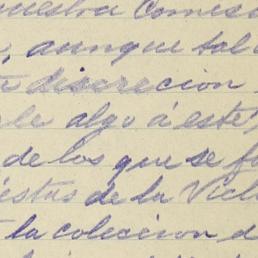 nuestra Comes
, aunque tal
discreción
le algo á este
de los que se fo
éstas de la Vic
la colección d